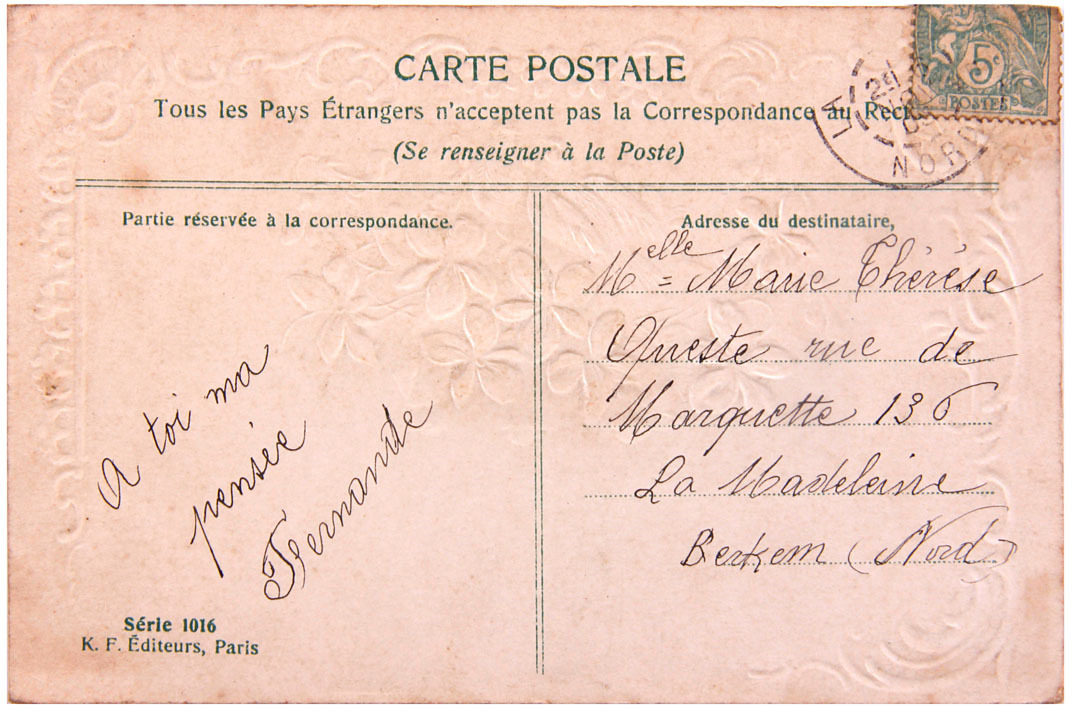 CARTE POSTALE
Tous les Pays Étrangers n'acceptent pas la Correspondance au Rect
(Se renseigner à la Poste)
5c
POSTES
LA
29
NORD
Partie réservée à la correspondance.
A toi ma
pensée
Fernande
Série 1016
K. F. Éditeurs, Paris
Adresse du destinataire,
Melle = Marie Thérèse
Queste rue de
Marquette 136
La Madeleine
Berkem (Nord)